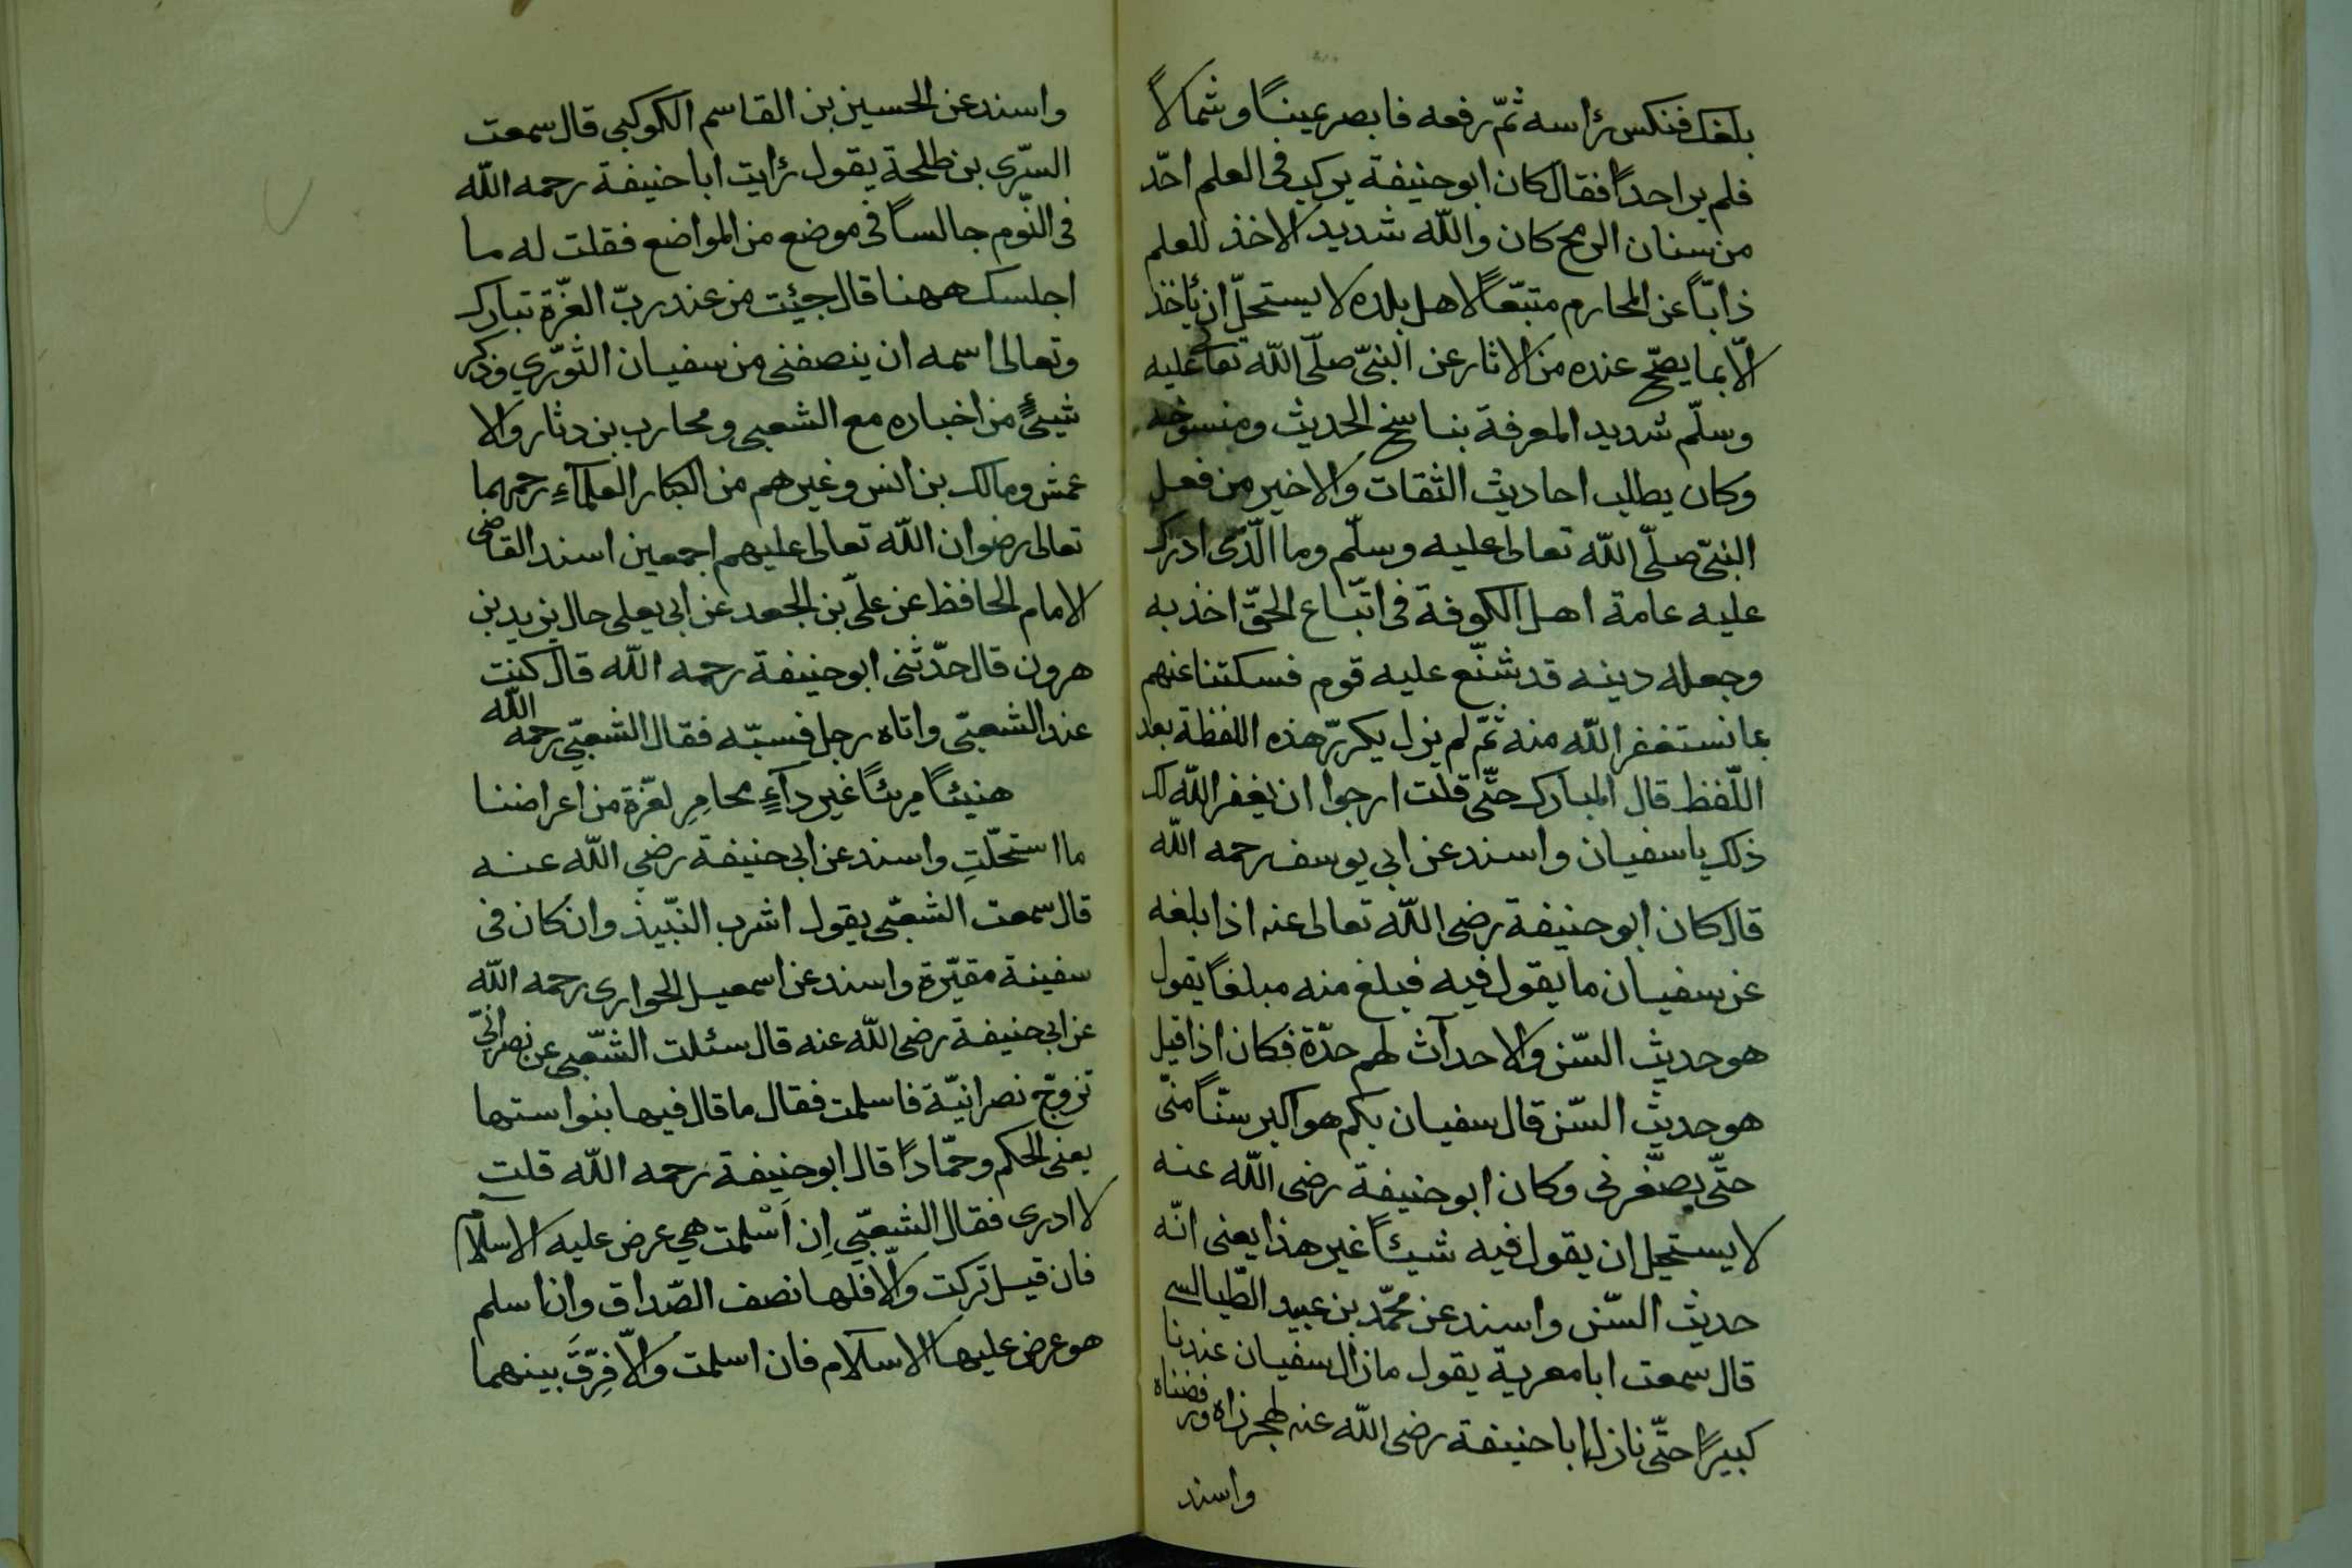 بلغك فنكس رٔاسه ثمّ رفعه فابصر يمينًا وشمالاً
فلم ير احدًا فقال كان ابوحنيفة يركب فى العلم احّد
من سنان الرمح كان والله شديد الاخذ للعلم
ذابّاً عن المحارم متبّعًا لاهل بلده لا يستحلّ ان ئاخذ
الّا بما يصّح عنده من الاثار عن النبىّ صلّى الله تعا عليه
وسلّم شديد المعرفة بناسخ الحديث ومنسوخه
وكان يطلب احاديث الثقات والاخير من فعل
النبىّ صلّى الله تعالى عليه وسلّم وما الّذى ادرك
عليه عامة اهل الكوفة فى اتّباع الحقّ اخذ به
وجعله دينه قد شنّع عليه قوم فسكتنا عنهم
بما نستغفر الله منه ثمّ لم يزل يكررّ هذه اللفظة بعد
اللّفظ قال المبارك حتّى قلت ارجوا ان يغفر الله لك
ذلك ياسفيان واسند عن ابى يوسف رحمه الله
قال كان ابوحنيفة رضى الله تعالى عنه اذا بلغه
عن سفيان ما يقول فيه فيبلغ منه مبلغًا يقول
هو حديث السّن والاحداث لهم حدّة فكان اذا قيل
هو حديث السّن قال سفيان بكم هو اكبر سنّاً منّى
حتّى يصّغرنى وكان ابوحنيفة رضى الله عنه
لا يستحيل ان يقول فيه شيئًا غير هذا يعنى انّه
حديث السّن واسند عن محمّد بن عبيد الطّيالسى
قال سمعت ابا معوية يقول مازال سفيان عندنا
كبيرًا حتّى نازل ابا حنيفة رضى الله عنه فهجرناه ورفضناه
واسند
واسند عن الحسين بن القاسم الكوكبى قال سمعت
السّرى بن طلحة يقول رٔايت ابا حنيفة رحمه الله
فى النّوم جالساً فى موضع من المواضع فقلت له ما
اجلسك ههنا قال جئت من عند ربّ العزّة تبارك
وتعالى اسمه ان ينصفنى من سفيان الثوّرى وذكر
شيئً من اخباره مع الشعبى ومحارب بن دثار والا
عمش ومالك بن انس وغيرهم من الكبار العلمآءِ رحمهما
تعالى رضوان الله تعالى عليهم اجمعين اسند القاضى
الامام الحافظ عن علىّ بن الجعد عن ابى يعلى حال يزيد بن
هرون قال حدّثنى ابوحنيفة رحمه الله قال كنت
عند الشعبّى واتاه رجل فسبّه فقال الشعبّى رحمه الله
هنيئًا مريئًا غير دآءٍ محامِرِ لعّزة من اعراضنا
ما استحلّتِ واسند عن ابى حنيفة رضى الله عنه
قال سمعت الشعبّى يقول اشرب النّبيذ وان كان فى
سفينة مقيّرة واسند عن اسمعيل الحوارى رحمه الله
عن ابى حنيفة رضى الله عنه قال سئلت الشّعبى عن نصرانىّ
تزوّج نصرانيّة فاسلمت فقال ما قال فيها بنوا ستها
يعنى الحكم وحمّادًا قال ابوحنيفة رحمه الله قلت
لا ادرى فقال الشعبّى اِن اَسْلمت هي عرض عليه الاسلام
فان قيل تركت والّا فلها نصف الصّداق وان اسلم
هو عرض عليها الاسلام فان اسلمت والّا فرّق بينهما